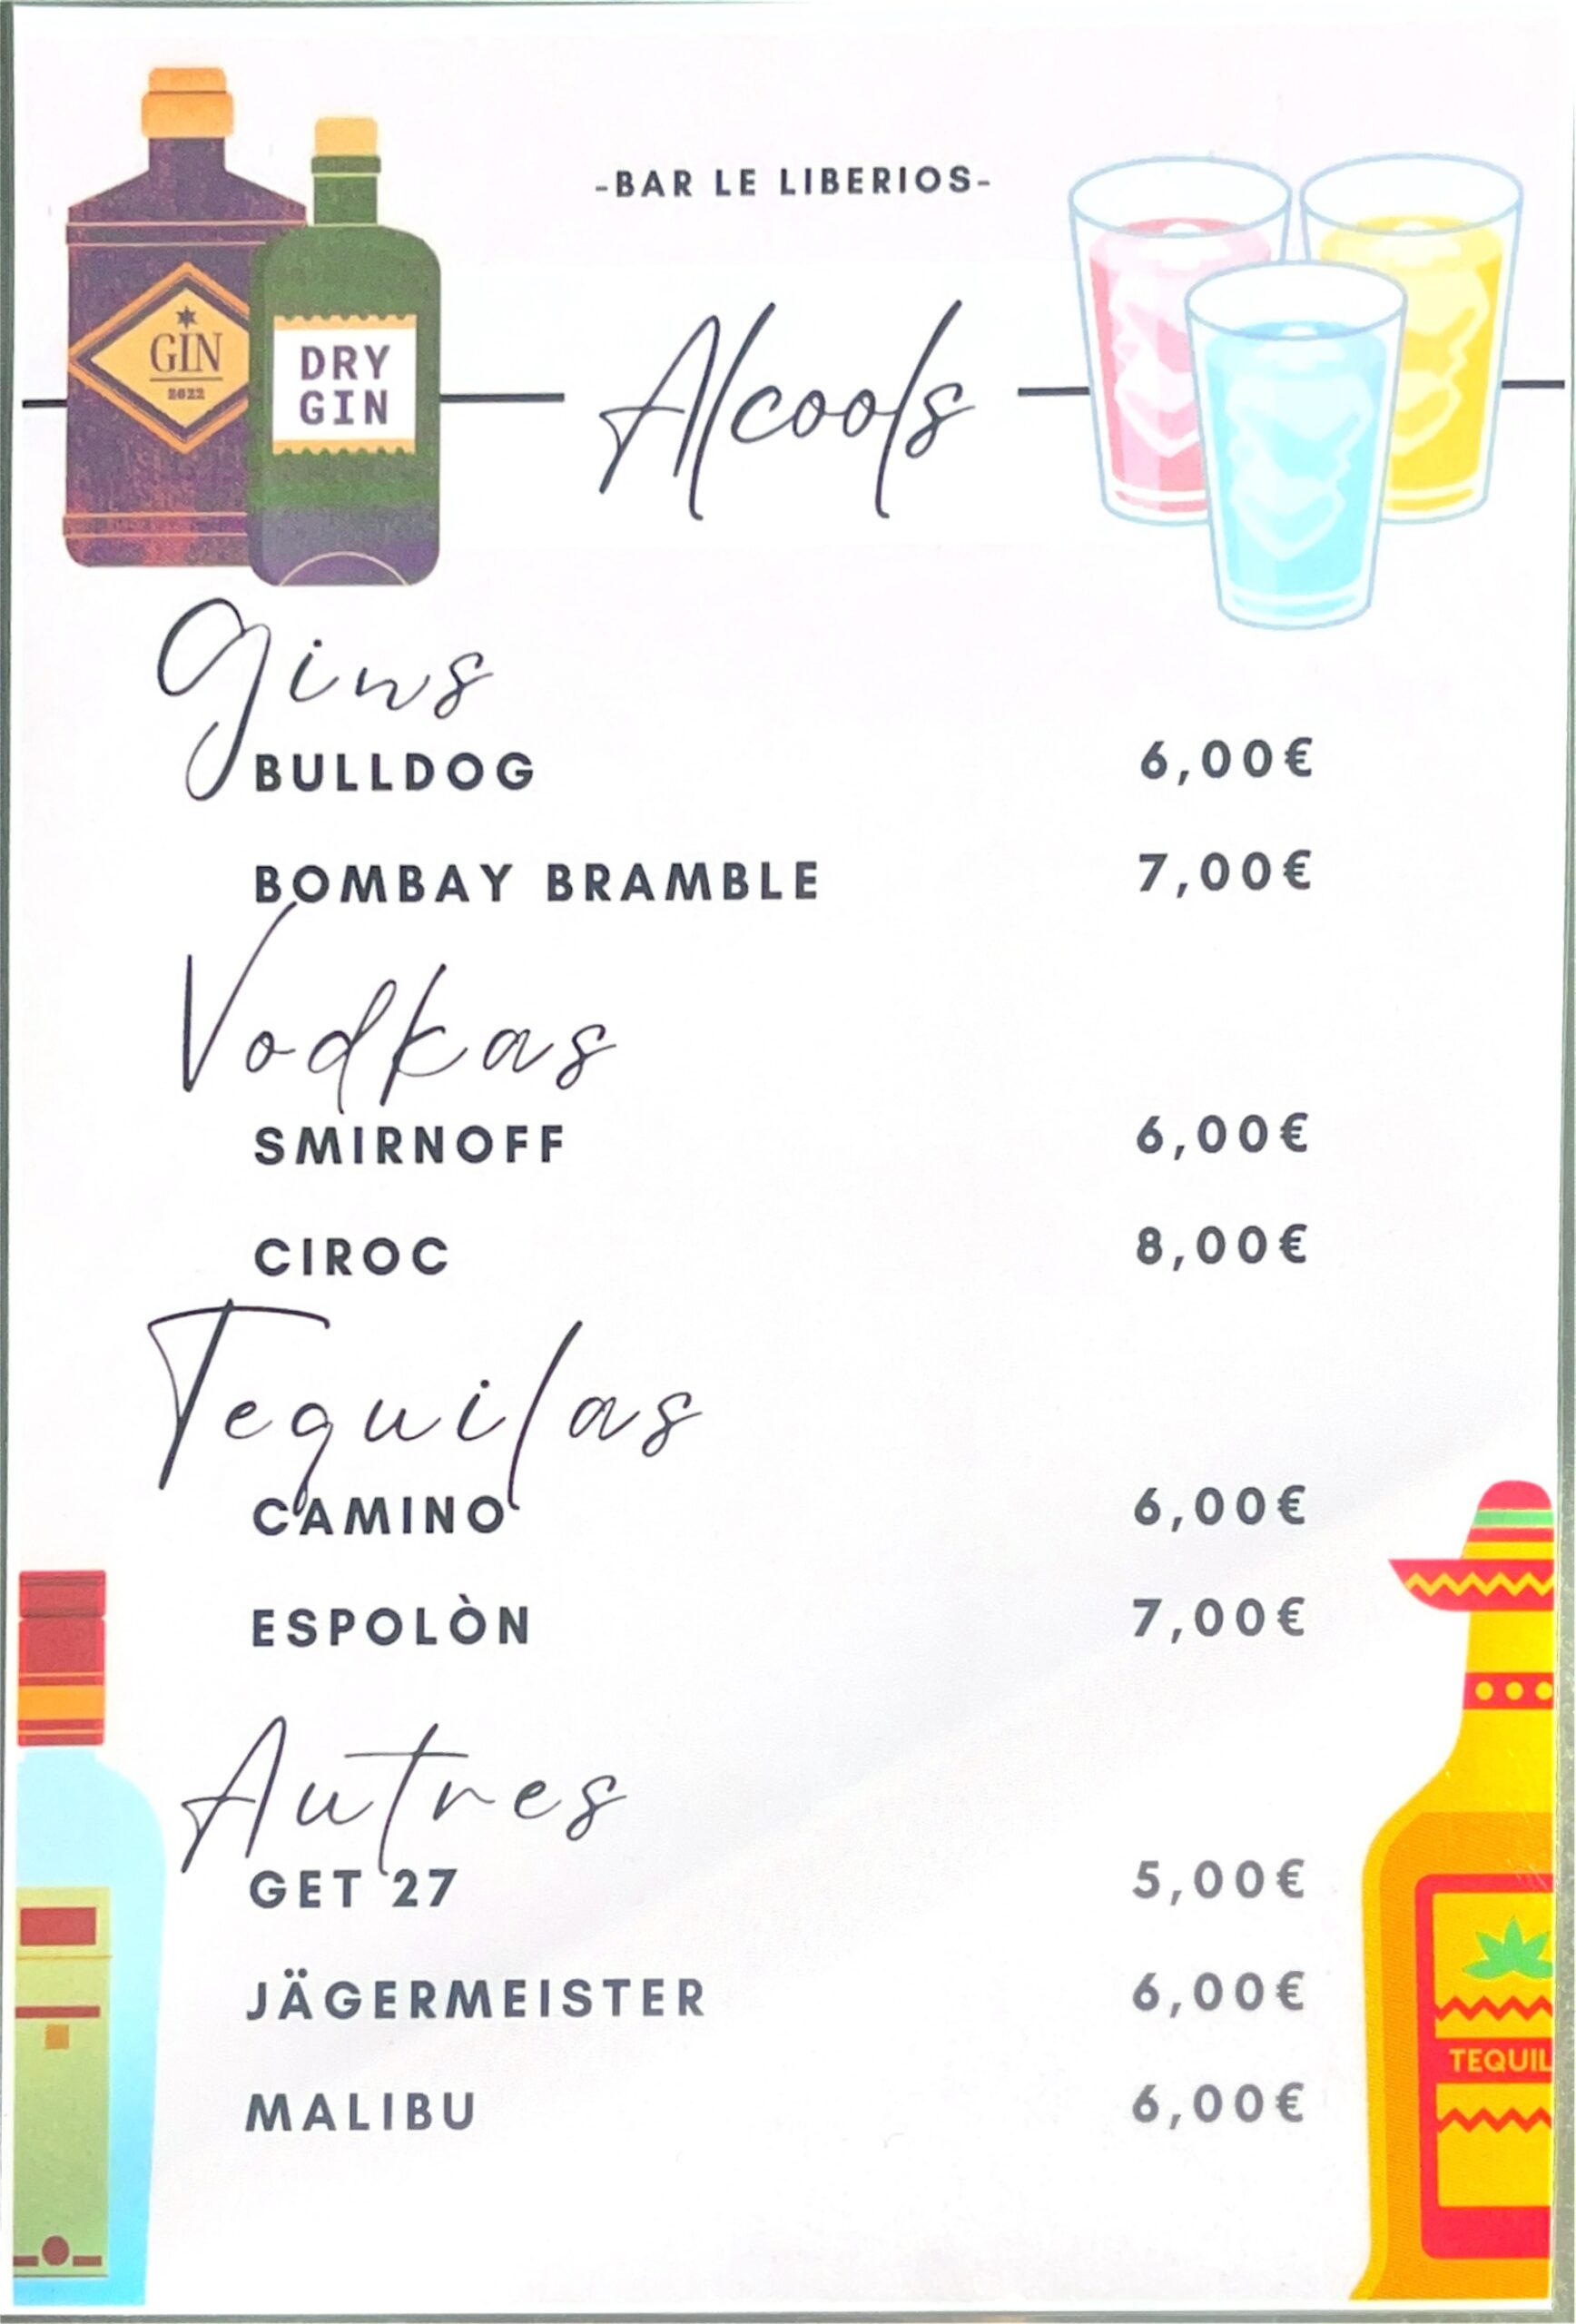 -BAR LE LIBERIOS-
GIN
2022
DRY
GIN
Alcools
Gins
BULLDOG 6,00€
BOMBAY BRAMBLE 7,00€
Vodkas
SMIRNOFF 6,00€
CIROC 8,00€
Tequilas
CAMINO 6,00€
ESPOLÒN 7,00€
Autres
GET 27 5,00€
JÄGERMEISTER 6,00€
MALIBU 6,00€
TEQUIL